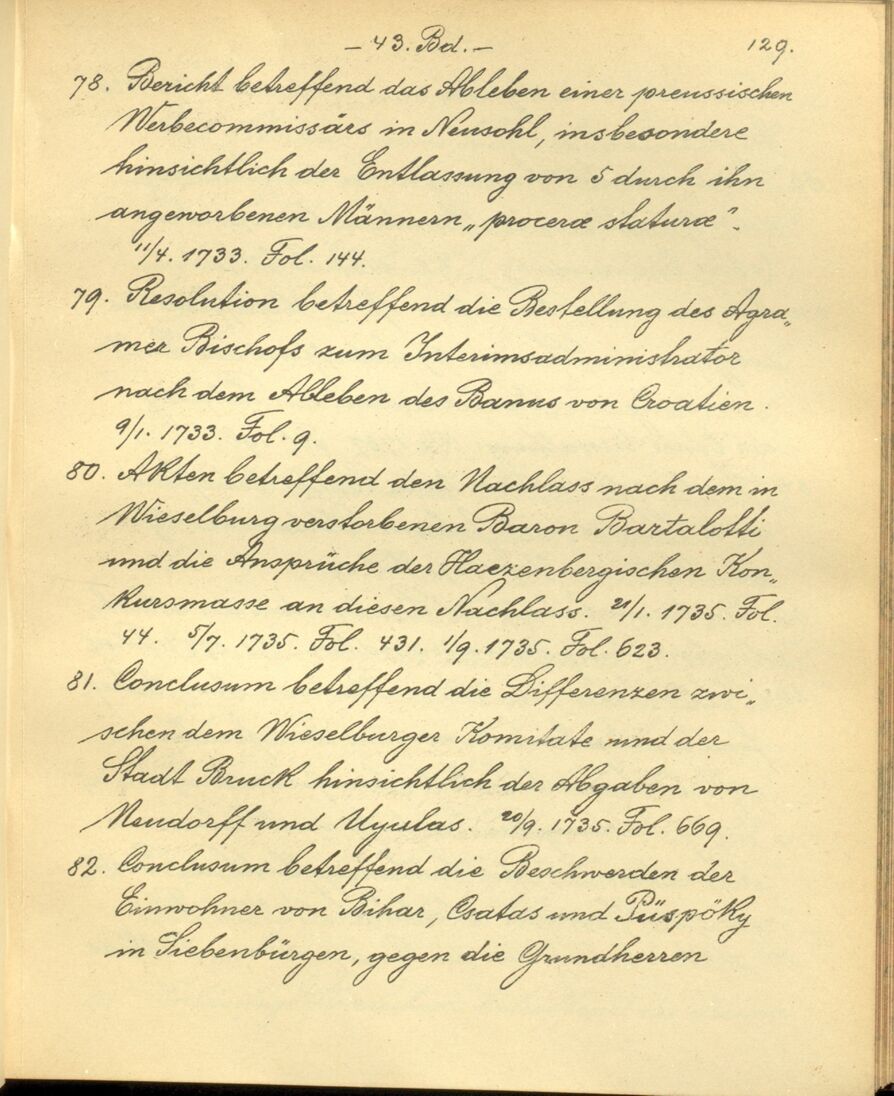 — 43. Bd. — 129.
78. Bericht betreffend das Ableben einer preussischen
Werbecommissärs in Neusohl, insbesondere
hinsichtlich der Entlassung von 5 durch ihn
angeworbenen Männern „procerae staturae".
11/4. 1733. Fol. 144.
79. Resolution betreffend die Bestellung des Agra„
mer Bischofs zum Interimsadministrator
nach dem Ableben des Banus von Croatien.
9/1. 1733. Fol. 9.
80. Akten betreffend den Nachlass nach dem in
Wieselburg verstorbenen Baron Bartalotti
und die Ansprüche der Haezenbergischen Kon„
kursmasse an diesen Nachlass. 21/1. 1735. Fol.
44. 5/7. 1735. Fol. 431. 1/9. 1735. Fol. 623.
81. Conclusum betreffend die Differenzen zwi„
schen dem Wieselburger Komitate und der
Stadt Bruck hinsichtlich der Abgaben von
Neudorff und Uyulas. 20/9. 1735. Fol. 669.
82. Conclusum betreffend die Beschwerden der
Einwohner von Bihar, Csatas und Püspöky
in Siebenbürgen, gegen die Grundherren